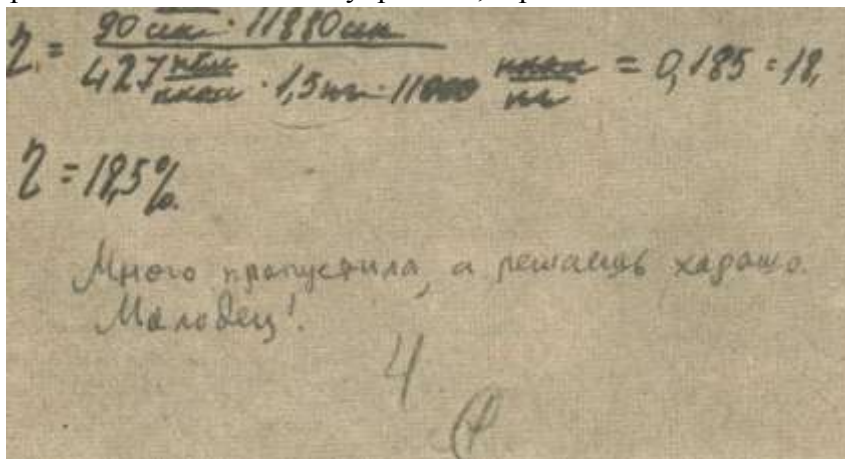 η = 90 сек · 11880 сек
427 · 1,5 кг · 11000 = 0,185 = 18,
η = 18,5%
Много пропустила, а решаешь харашо.
Маладец!
4